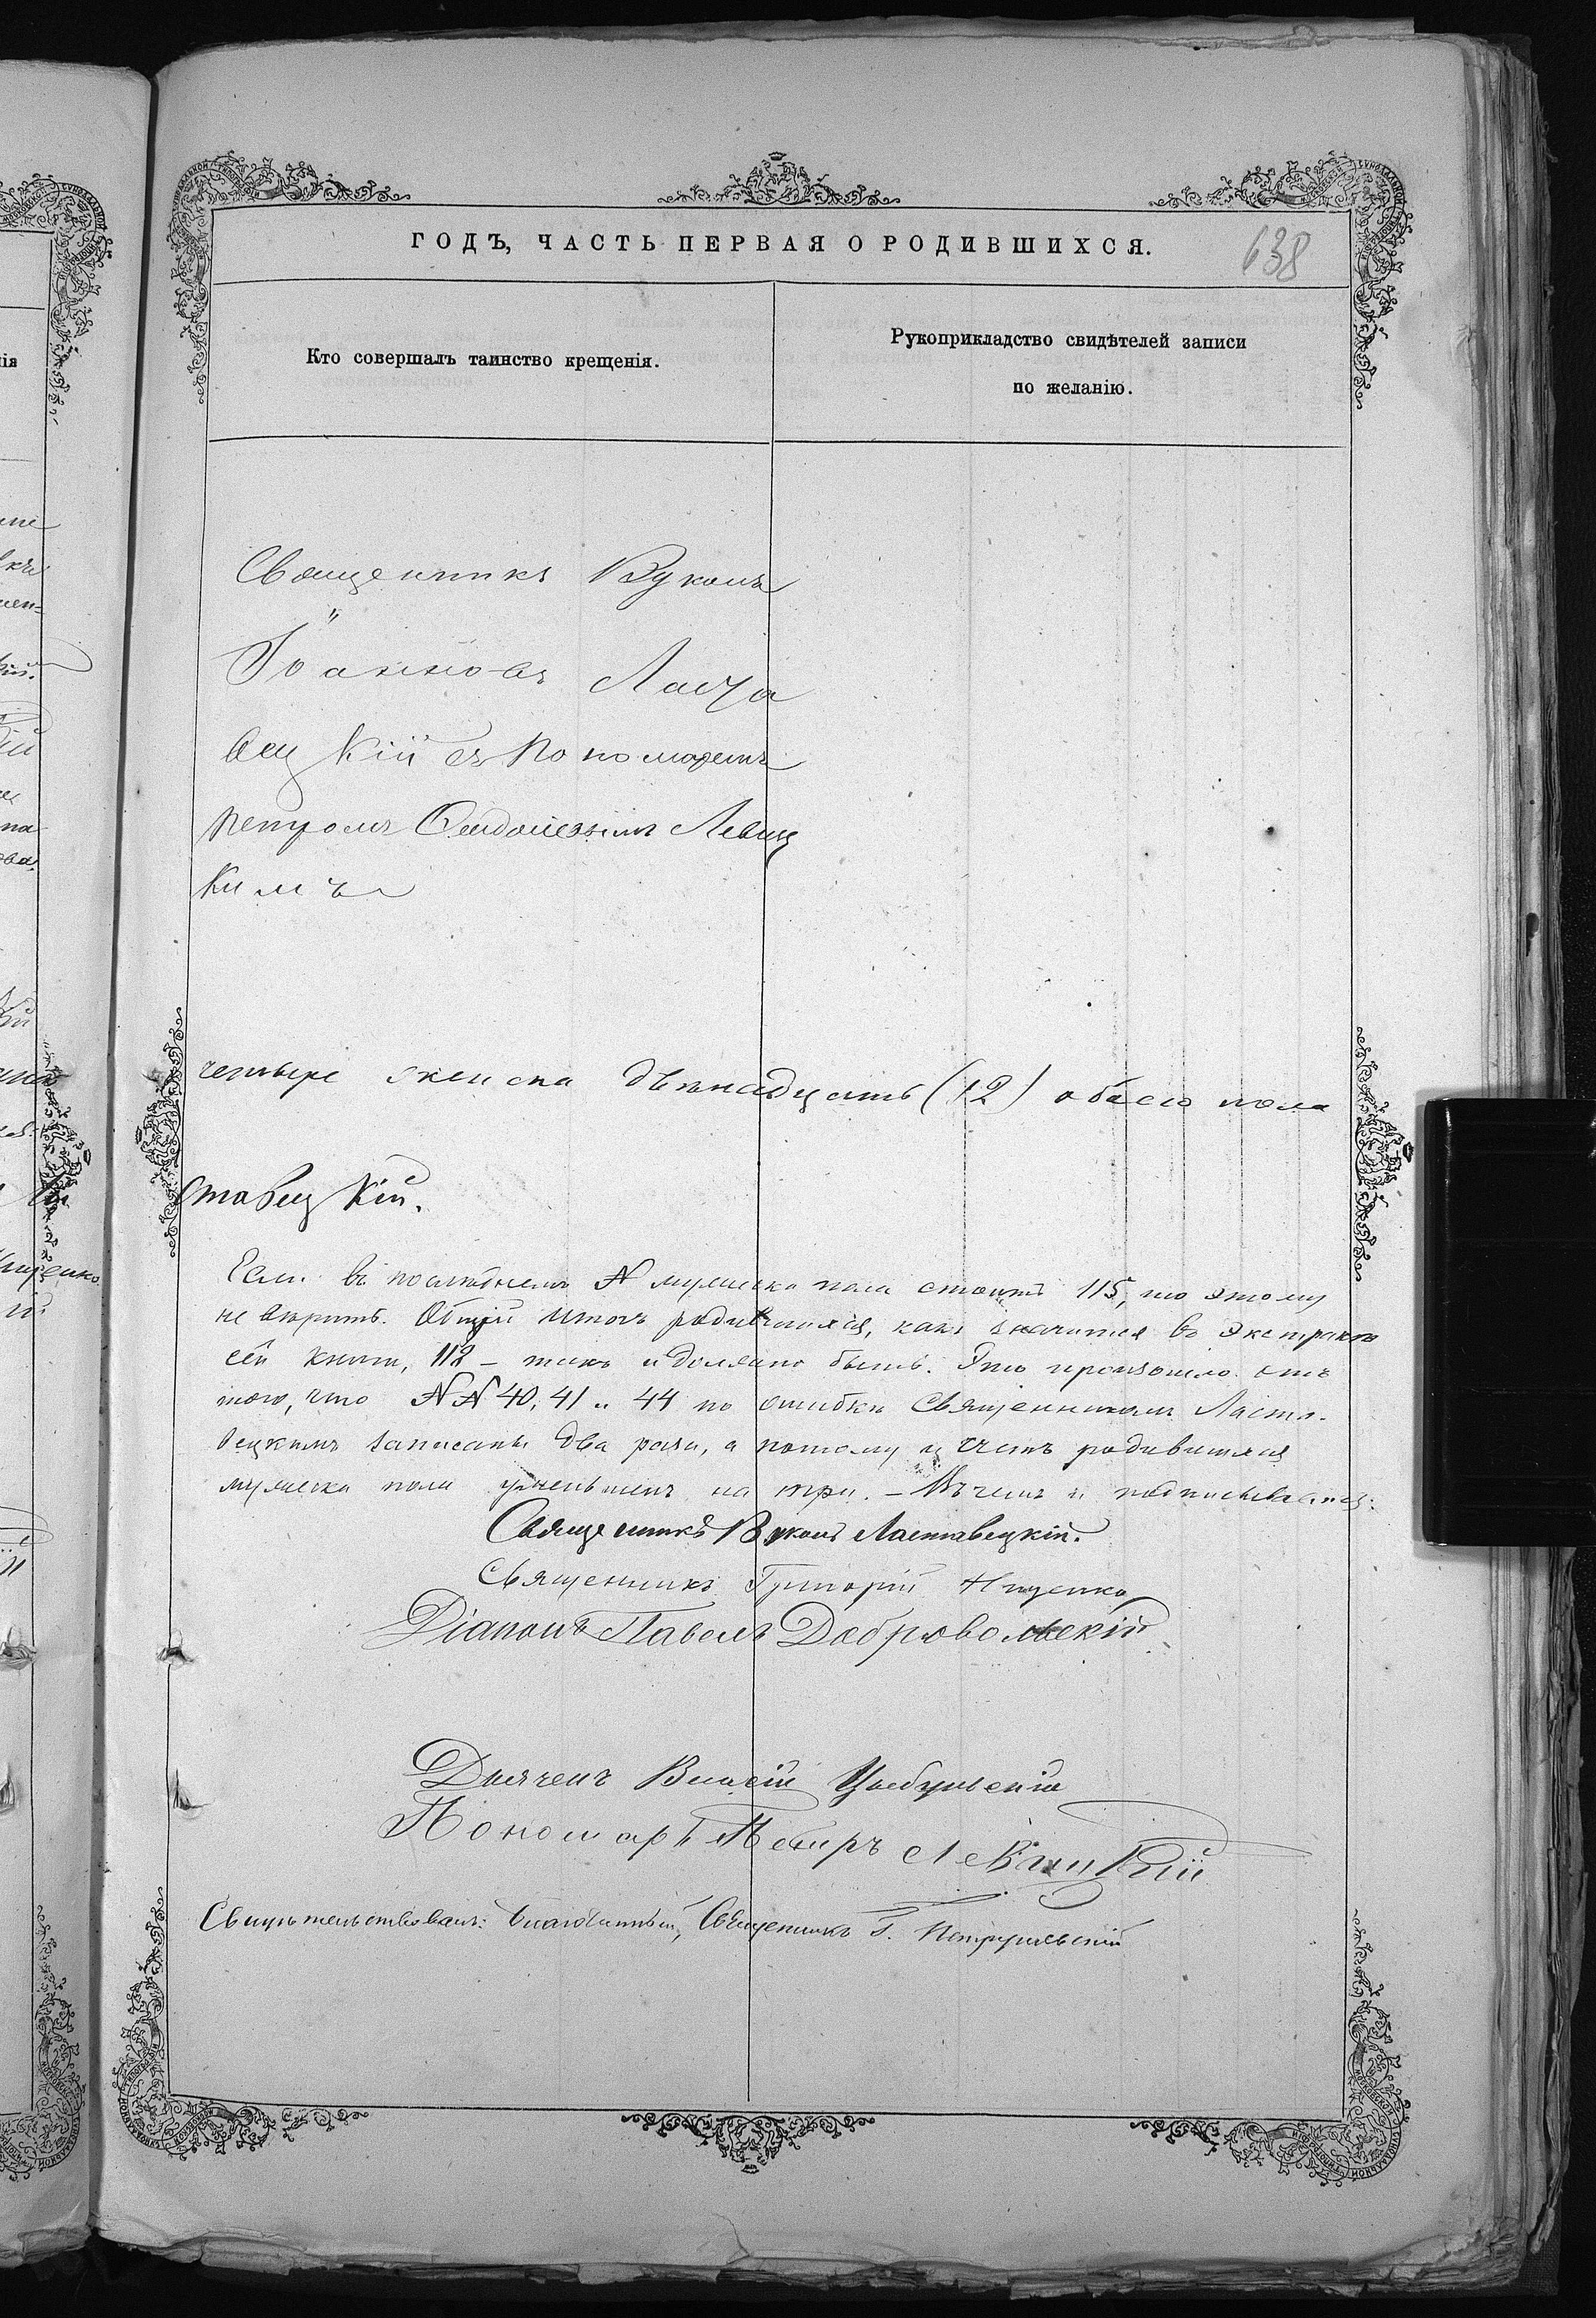 ГОДЪ, ЧАСТЬ ПЕРВАЯ О РОДИВШИХСЯ.
638
Кто совершалъ таинство крещенія.
Рукоприкладство свидѣтелей записи
по желанію.
Священникъ Вуколъ
Іоанновъ Ласта
вецкій съ Пономаремъ
Петромъ Левиц
кимъ
четыре женска двѣнадцать (12) обоего пола
ставецкій.
Если въ послѣднемъ № мужеска пола стоитъ 115, то этому
не вѣрить. Общій итогъ родившихся, какъ значится въ экстрактѣ
сей книги, 112 – такъ и должно быть. Это произошло отъ
того, что №№ 40, 41 и 44 по ошибкѣ Священникомъ Ласта-
вецкимъ записаны два раза, а потому и счетъ родившихся
мужеска пола уменьшенъ на три. – Въ чемъ и подписываемся:
Священникъ Вуколъ Ластавецкій.
Священникъ Григорій Нищенко
Діаконъ Павелъ Добровольскій
Дьячекъ Цыбульскій
Пономарь Петръ Левицкій
Свидѣтельствовалъ: Благочинный, Священникъ